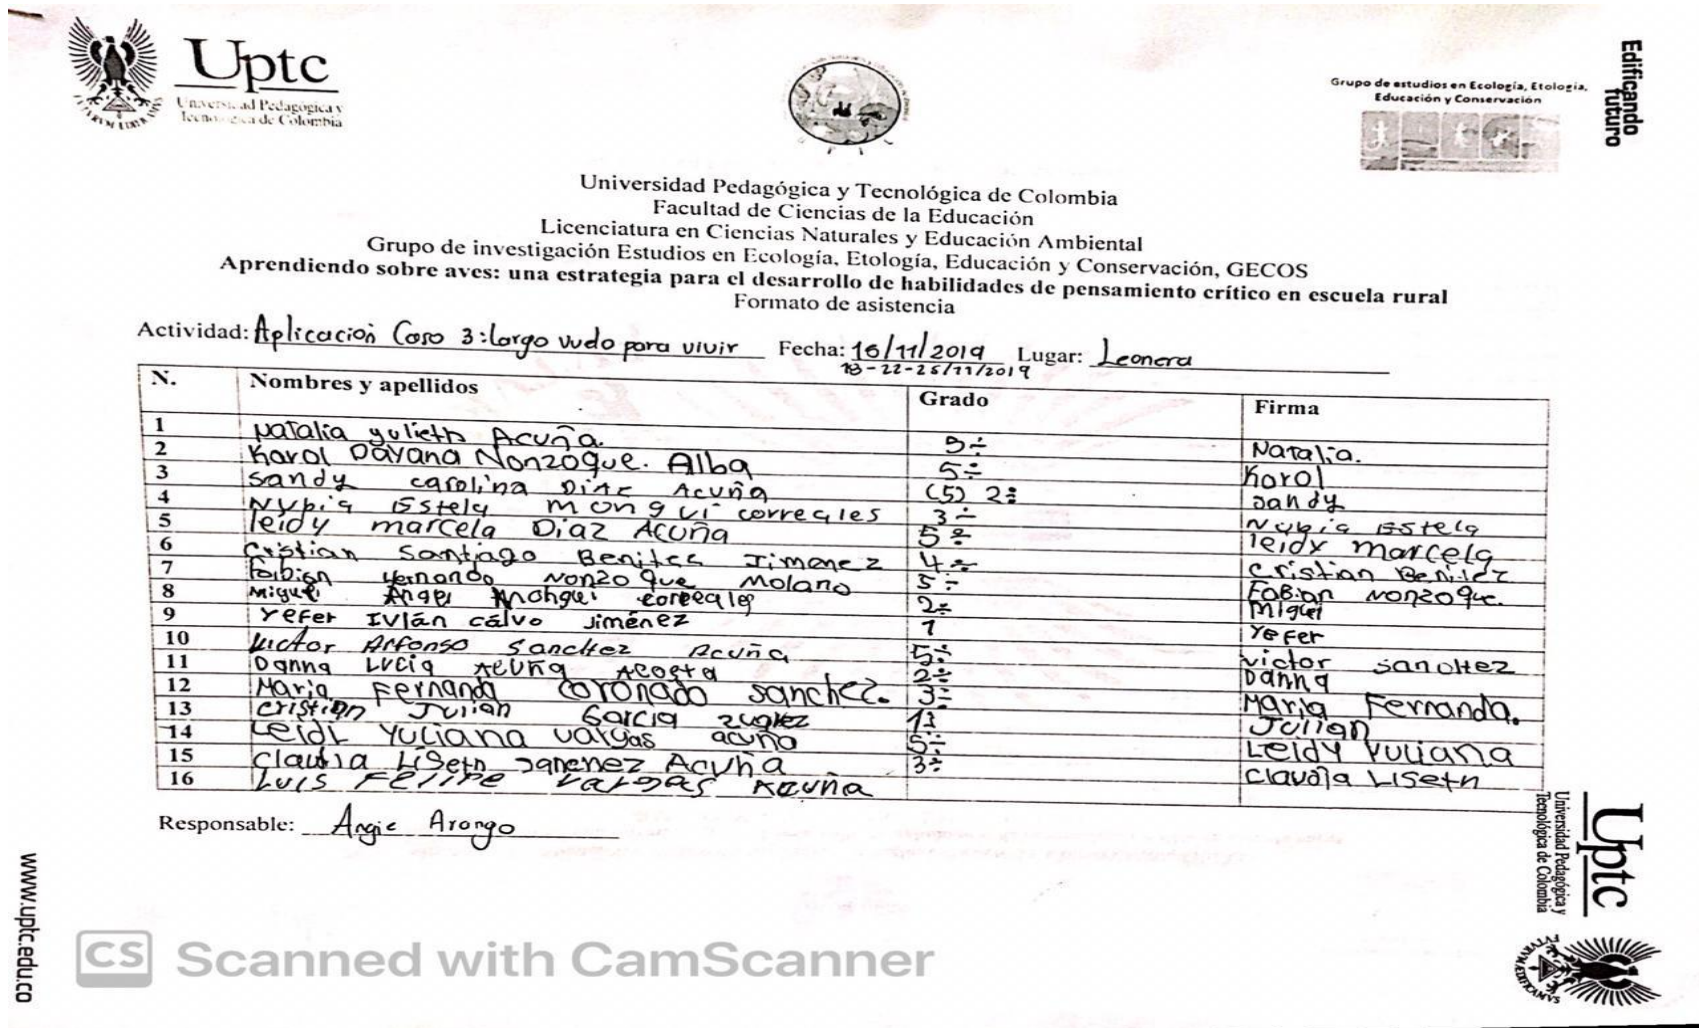 Uptc
Universidad Pedagógica y
Tecnológica de Colombia
Grupo de estudios en Ecología, Etología,
Educación y Conservación
Edificando
futuro
Universidad Pedagógica y Tecnológica de Colombia
Facultad de Ciencias de la Educación
Licenciatura en Ciencias Naturales y Educación Ambiental
Grupo de investigación Estudios en Ecología, Etología, Educación y Conservación, GECOS
Aprendiendo sobre aves: una estrategia para el desarrollo de habilidades de pensamiento crítico en escuela rural
Formato de asistencia
Actividad: Aplicación Caso 3: Largo vuelo para vivir Fecha: 16/11/2019 Lugar: Leonera
18-22-25/11/2019
N. Nombres y apellidos Grado Firma
1 Natalia yulieth Acuña. 5÷ Natalia.
2 Karol Dayana Nonzoque. Alba 5÷ Karol
3 Sandy carolina Diaz Acuña (5) 2÷ Sandy
4 Nybia Estela Mongui correales 3÷ Nybia Estela
5 leidy marcela Diaz Acuña 5÷ leidy marcela
6 Cristian Santiago Benites Jimenez 4÷ Cristian Benitez
7 Fabian Hernando Nonzoque Molano 5÷ Fabian Nonzoque.
8 Miguel Angel Mongui correales 2÷ Miguel
9 Yefer Ivlán calvo Jiménez 1 Yefer
10 Victor Alfonso Sanchez Acuña 5÷ victor sanchez
11 Danna Lucia Acuña Acosta 2÷ Danna
12 Maria Fernanda coronado sanchez. 3÷ Maria Fernanda.
13 cristian Julian Garcia 1÷ Julian
14 Leidy Yuliana vargas acuña 5÷ Leidy Yuliana
15 Claudia Liseth Acuña 3÷ Claudia Liseth
16 Luis Felipe Vargas Acuña
Responsable: Angie Arango
www.uptc.edu.co
CS Scanned with CamScanner
Uptc
Universidad Pedagógica y
Tecnológica de Colombia